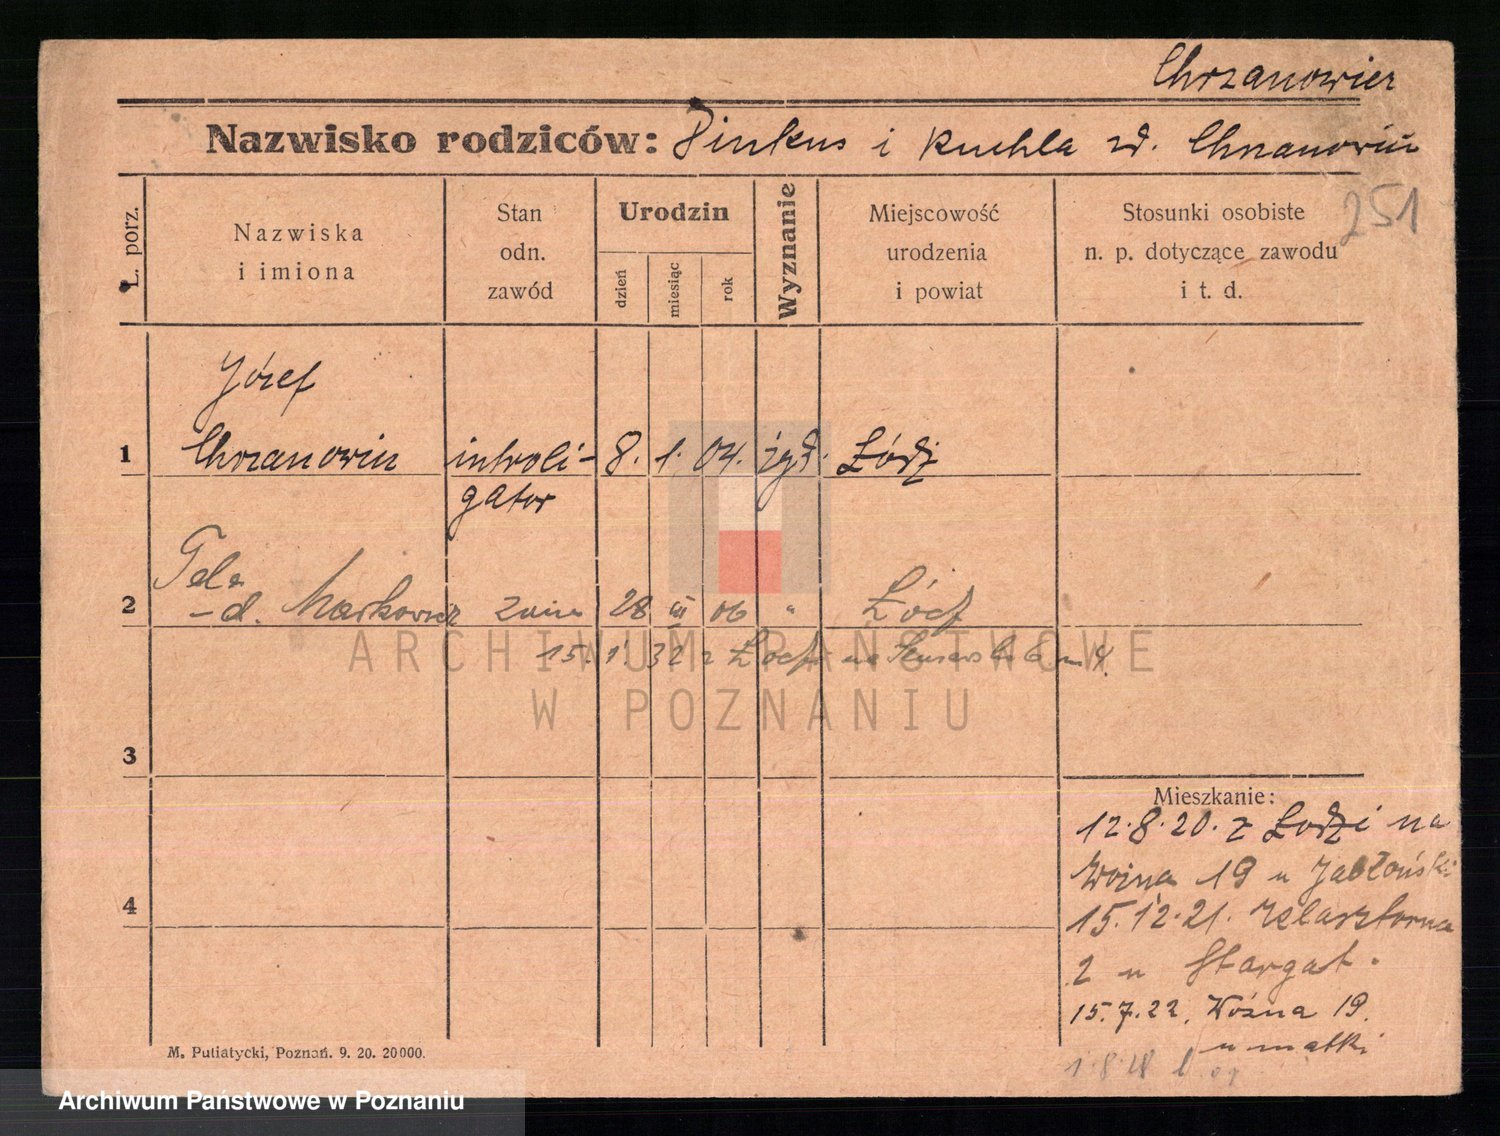 Chrzanowicz
Nazwisko rodziców: Pinkus i Ruchla zd. Chrzanowicz
251
L. porz.
Nazwiska
i imiona
Stan
odn.
zawód
Urodzin
dzień
miesiąc
rok
Wyznanie
Miejscowość
urodzenia
i powiat
Stosunki osobiste
n. p. dotyczące zawodu
i t. d.
Józef
1 Chrzanowicz introli- 8. 1. 04. żyd. Łódź
gator
2 -d. Markowicz żona 28 III 06 " Łódź
15. 1. 32 z Łodzi na 4.
ARCHIWUM PAŃSTWOWE
W POZNANIU
3
Mieszkanie:
12.8.20. z Łodzi na
Woźna 19 u Jabłoński
4
15.12.21. Klasztorna
2 u Stargat.
15.7.22. Woźna 19.
u matki
1.8.28
M. Putiatycki, Poznań. 9. 20. 20000.
Archiwum Państwowe w Poznaniu